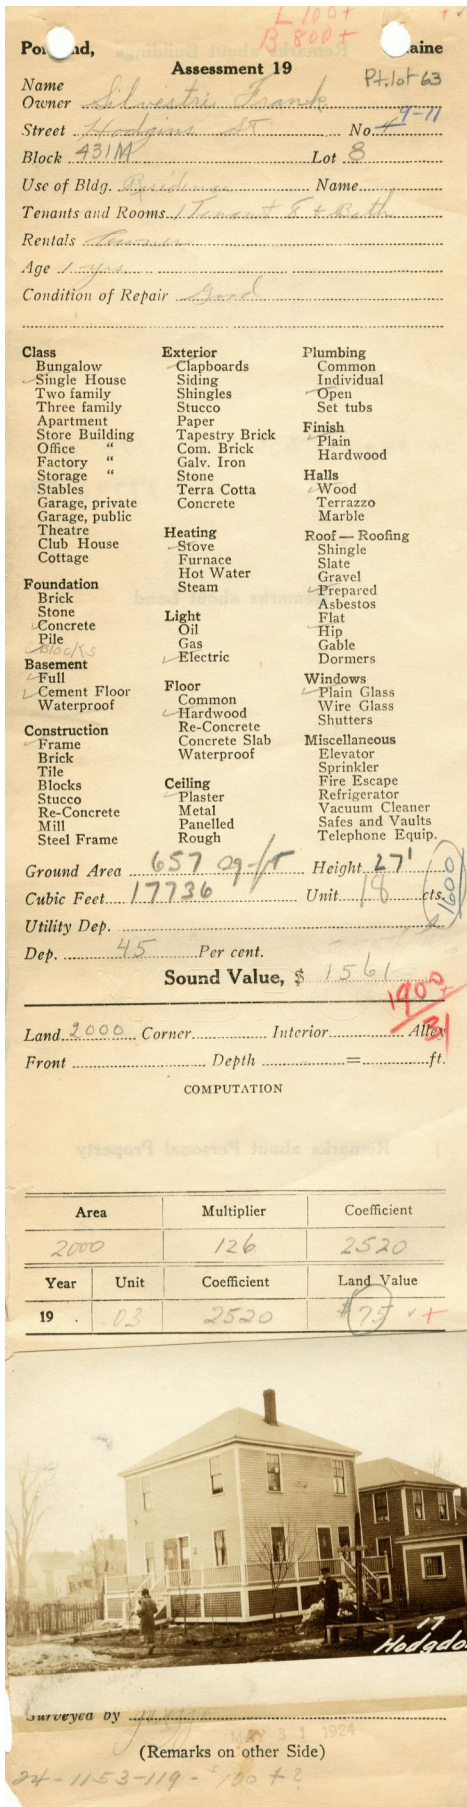 L 100+
B. 800+
+ ✓
Po nd, aine
Assessment 19
Pt. lot 63
Name
Owner Silvestri Frank
Street Hodgins St No. 9-11
Block 431M Lot 8
Use of Bldg. Residence Name
Tenants and Rooms 1 Tenant 8 + Bath
Rentals Owner
Age 1 yrs
Condition of Repair Good
Class
Bungalow
✓ Single House
Two family
Three family
Apartment
Store Building
Office "
Factory "
Storage "
Stables
Garage, private
Garage, public
Theatre
Club House
Cottage
Foundation
Brick
Stone
✓ Concrete
Pile
✓ Blocks
Basement
✓ Full
✓ Cement Floor
Waterproof
Construction
✓ Frame
Brick
Tile
Blocks
Stucco
Re-Concrete
Mill
Steel Frame
Exterior
✓ Clapboards
Siding
Shingles
Stucco
Paper
Tapestry Brick
Com. Brick
Galv. Iron
Stone
Terra Cotta
Concrete
Heating
✓ Stove
Furnace
Hot Water
Steam
Light
Oil
Gas
✓ Electric
Floor
Common
✓ Hardwood
Re-Concrete
Concrete Slab
Waterproof
Ceiling
✓ Plaster
Metal
Panelled
Rough
Plumbing
Common
Individual
✓ Open
Set tubs
Finish
✓ Plain
Hardwood
Halls
✓ Wood
Terrazzo
Marble
Roof — Roofing
Shingle
Slate
Gravel
✓ Prepared
Asbestos
Flat
✓ Hip
Gable
Dormers
Windows
✓ Plain Glass
Wire Glass
Shutters
Miscellaneous
Elevator
Sprinkler
Fire Escape
Refrigerator
Vacuum Cleaner
Safes and Vaults
Telephone Equip.
Ground Area 657 sq-ft Height 27'
Cubic Feet 17736 Unit 18 cts.
1600
Utility Dep.
Dep. 45 Per cent.
Sound Value, $ 1561
1900+
/31
Land 2000 Corner Interior Alley
Front Depth = ft.
COMPUTATION
Area Multiplier Coefficient
2000 126 2520
Year Unit Coefficient Land Value
19 .03 2520 $75 ✓ +
17
Hodgdo
Surveyed by
MAY 31 1924
(Remarks on other Side)
24-1153-119-